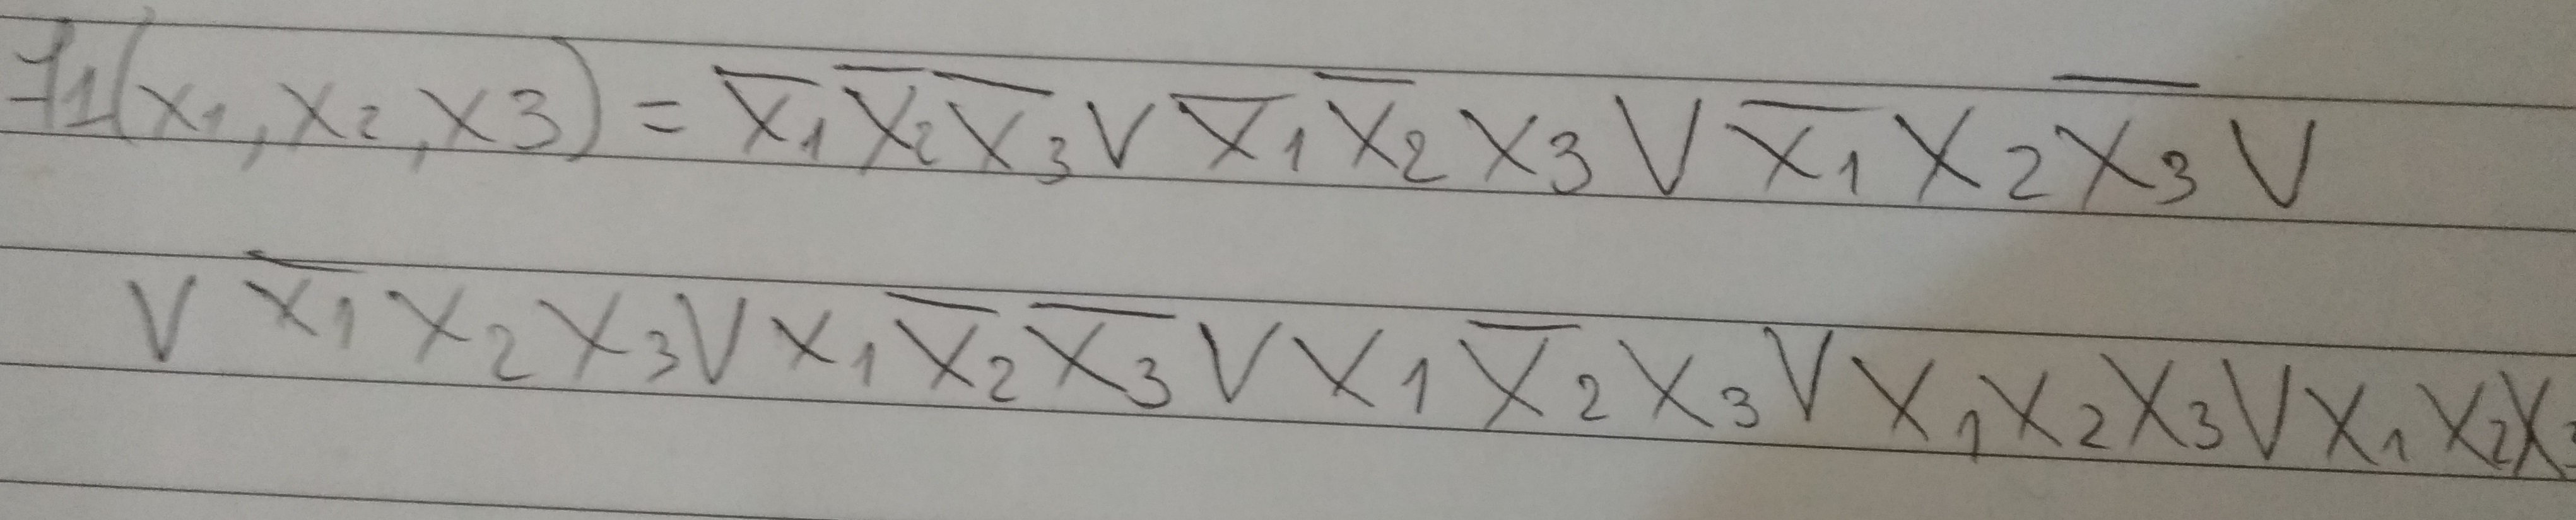 f1(x1,x2,x3) = x̅1x̅2x̅3 V x̅1x̅2x3 V x̅1x2x̅3 V
V x̅1x2x3 V x1x̅2x̅3 V x1x̅2x3 V x1x2x3 V x1x2x